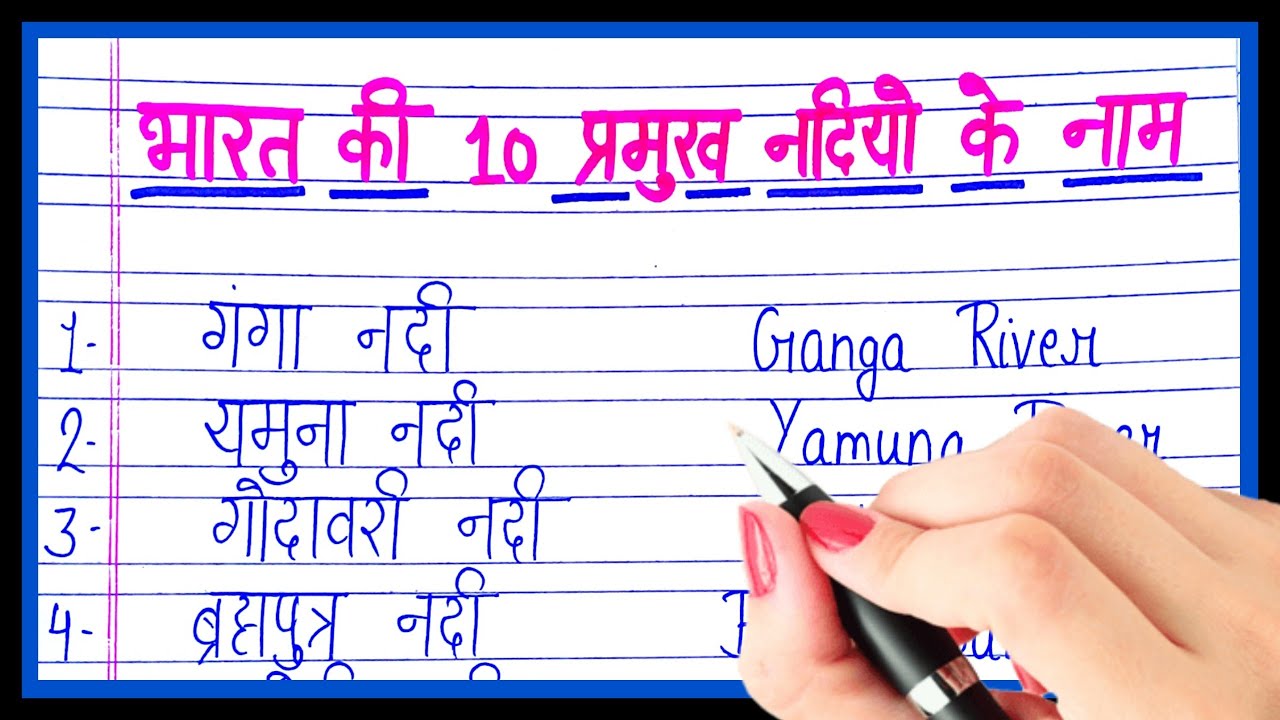 भारत की 10 प्रमुख नदियो के नाम
1- गंगा नदी Ganga River
2- यमुना नदी Yamuna
3- गोदावरी नदी
4- ब्रह्मपुत्र नदी